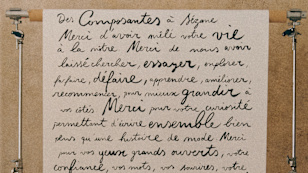 Des Composantes à Sézane
Merci d'avoir mêlé votre vie
à la nôtre Merci de nous avoir
laissé chercher, essayer, explorer,
parfaire, défaire, apprendre, améliorer,
recommencer, pour mieux grandir à
vos côtés Merci pour votre curiosité
permettant d'écrire ensemble bien
plus qu'une histoire de mode Merci
pour vos yeux grands ouverts, votre
confiance, vos mots, vos sourires, votre